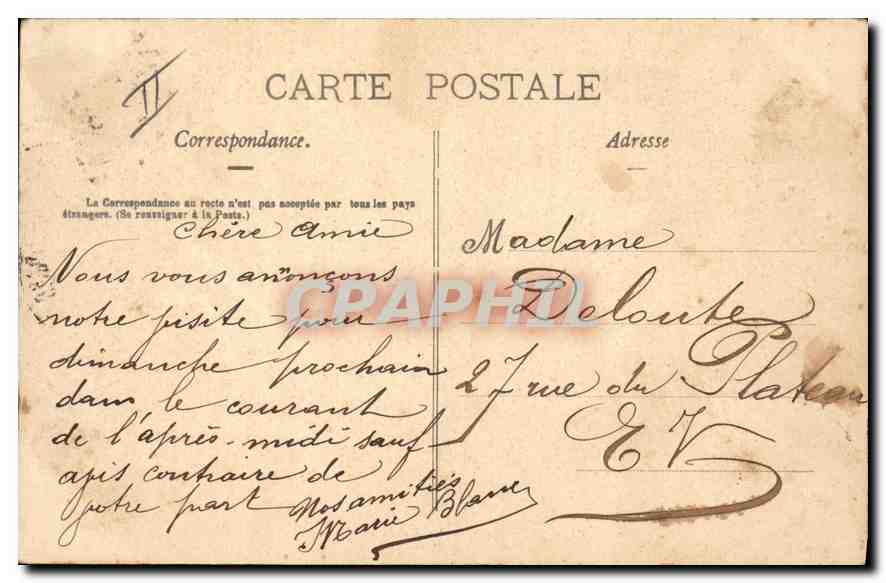 II
CARTE POSTALE
Correspondance.
Adresse
La Correspondance au recto n'est pas acceptée par tous les pays
étrangers. (Se renseigner à la Poste.)
Chère Amie
Nous vous annonçons
notre visite pour
dimanche prochain
dans le courant
de l'après-midi sauf
avis contraire de
votre part
Nos amitiés
Marie Blanc
Madame
Deloute
27 rue du Plateau
E V
CPAPHIL